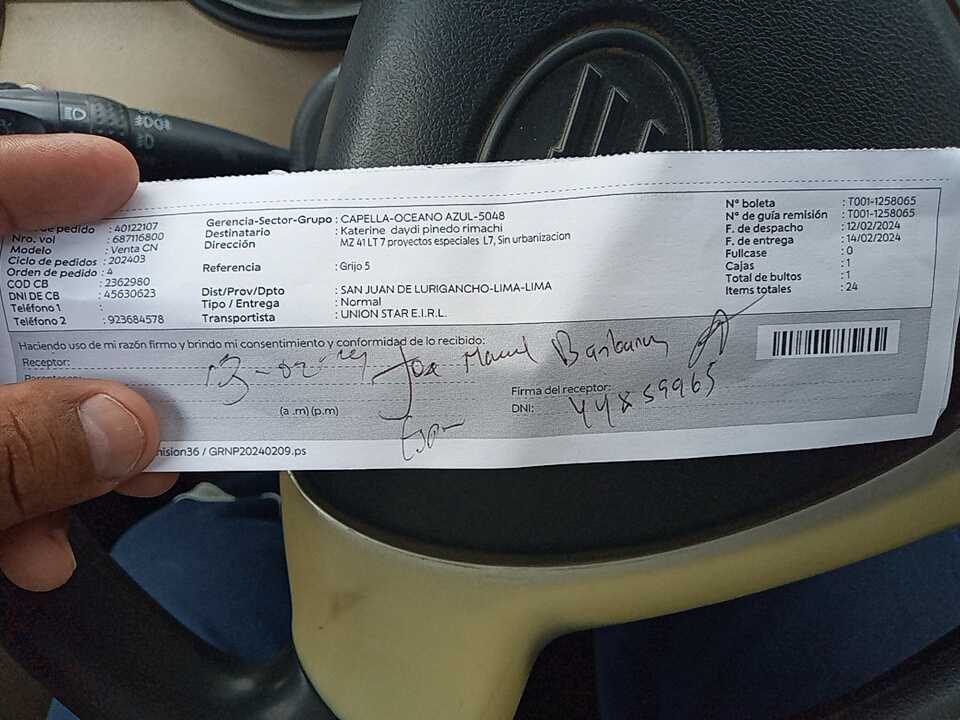 de pedido : 40122107
Nro. vol : 687116800
Modelo : Venta CN
Ciclo de pedidos : 202403
Orden de pedido : 4
COD CB : 2362980
DNI DE CB : 45630623
Teléfono 1 :
Teléfono 2 : 923684578
Gerencia-Sector-Grupo : CAPELLA-OCEANO AZUL-5048
Destinatario : Katerine daydi pinedo rimachi
Dirección MZ 41 LT 7 proyectos especiales L7, Sin urbanizacion
Referencia : Grijo 5
Dist/Prov/Dpto : SAN JUAN DE LURIGANCHO-LIMA-LIMA
Tipo / Entrega : Normal
Transportista : UNION STAR E.I.R.L.
N° boleta : T001-1258065
N° de guía remisión : T001-1258065
F. de despacho : 12/02/2024
F. de entrega : 14/02/2024
Fullcase : 0
Cajas : 1
Total de bultos : 1
Items totales : 24
Haciendo uso de mi razón firmo y brindo mi consentimiento y conformidad de lo recibido:
Receptor:
13-02-24 Jose Manuel
(a .m) (p.m)
Firma del receptor:
DNI:
ision36 / GRNP20240209.ps